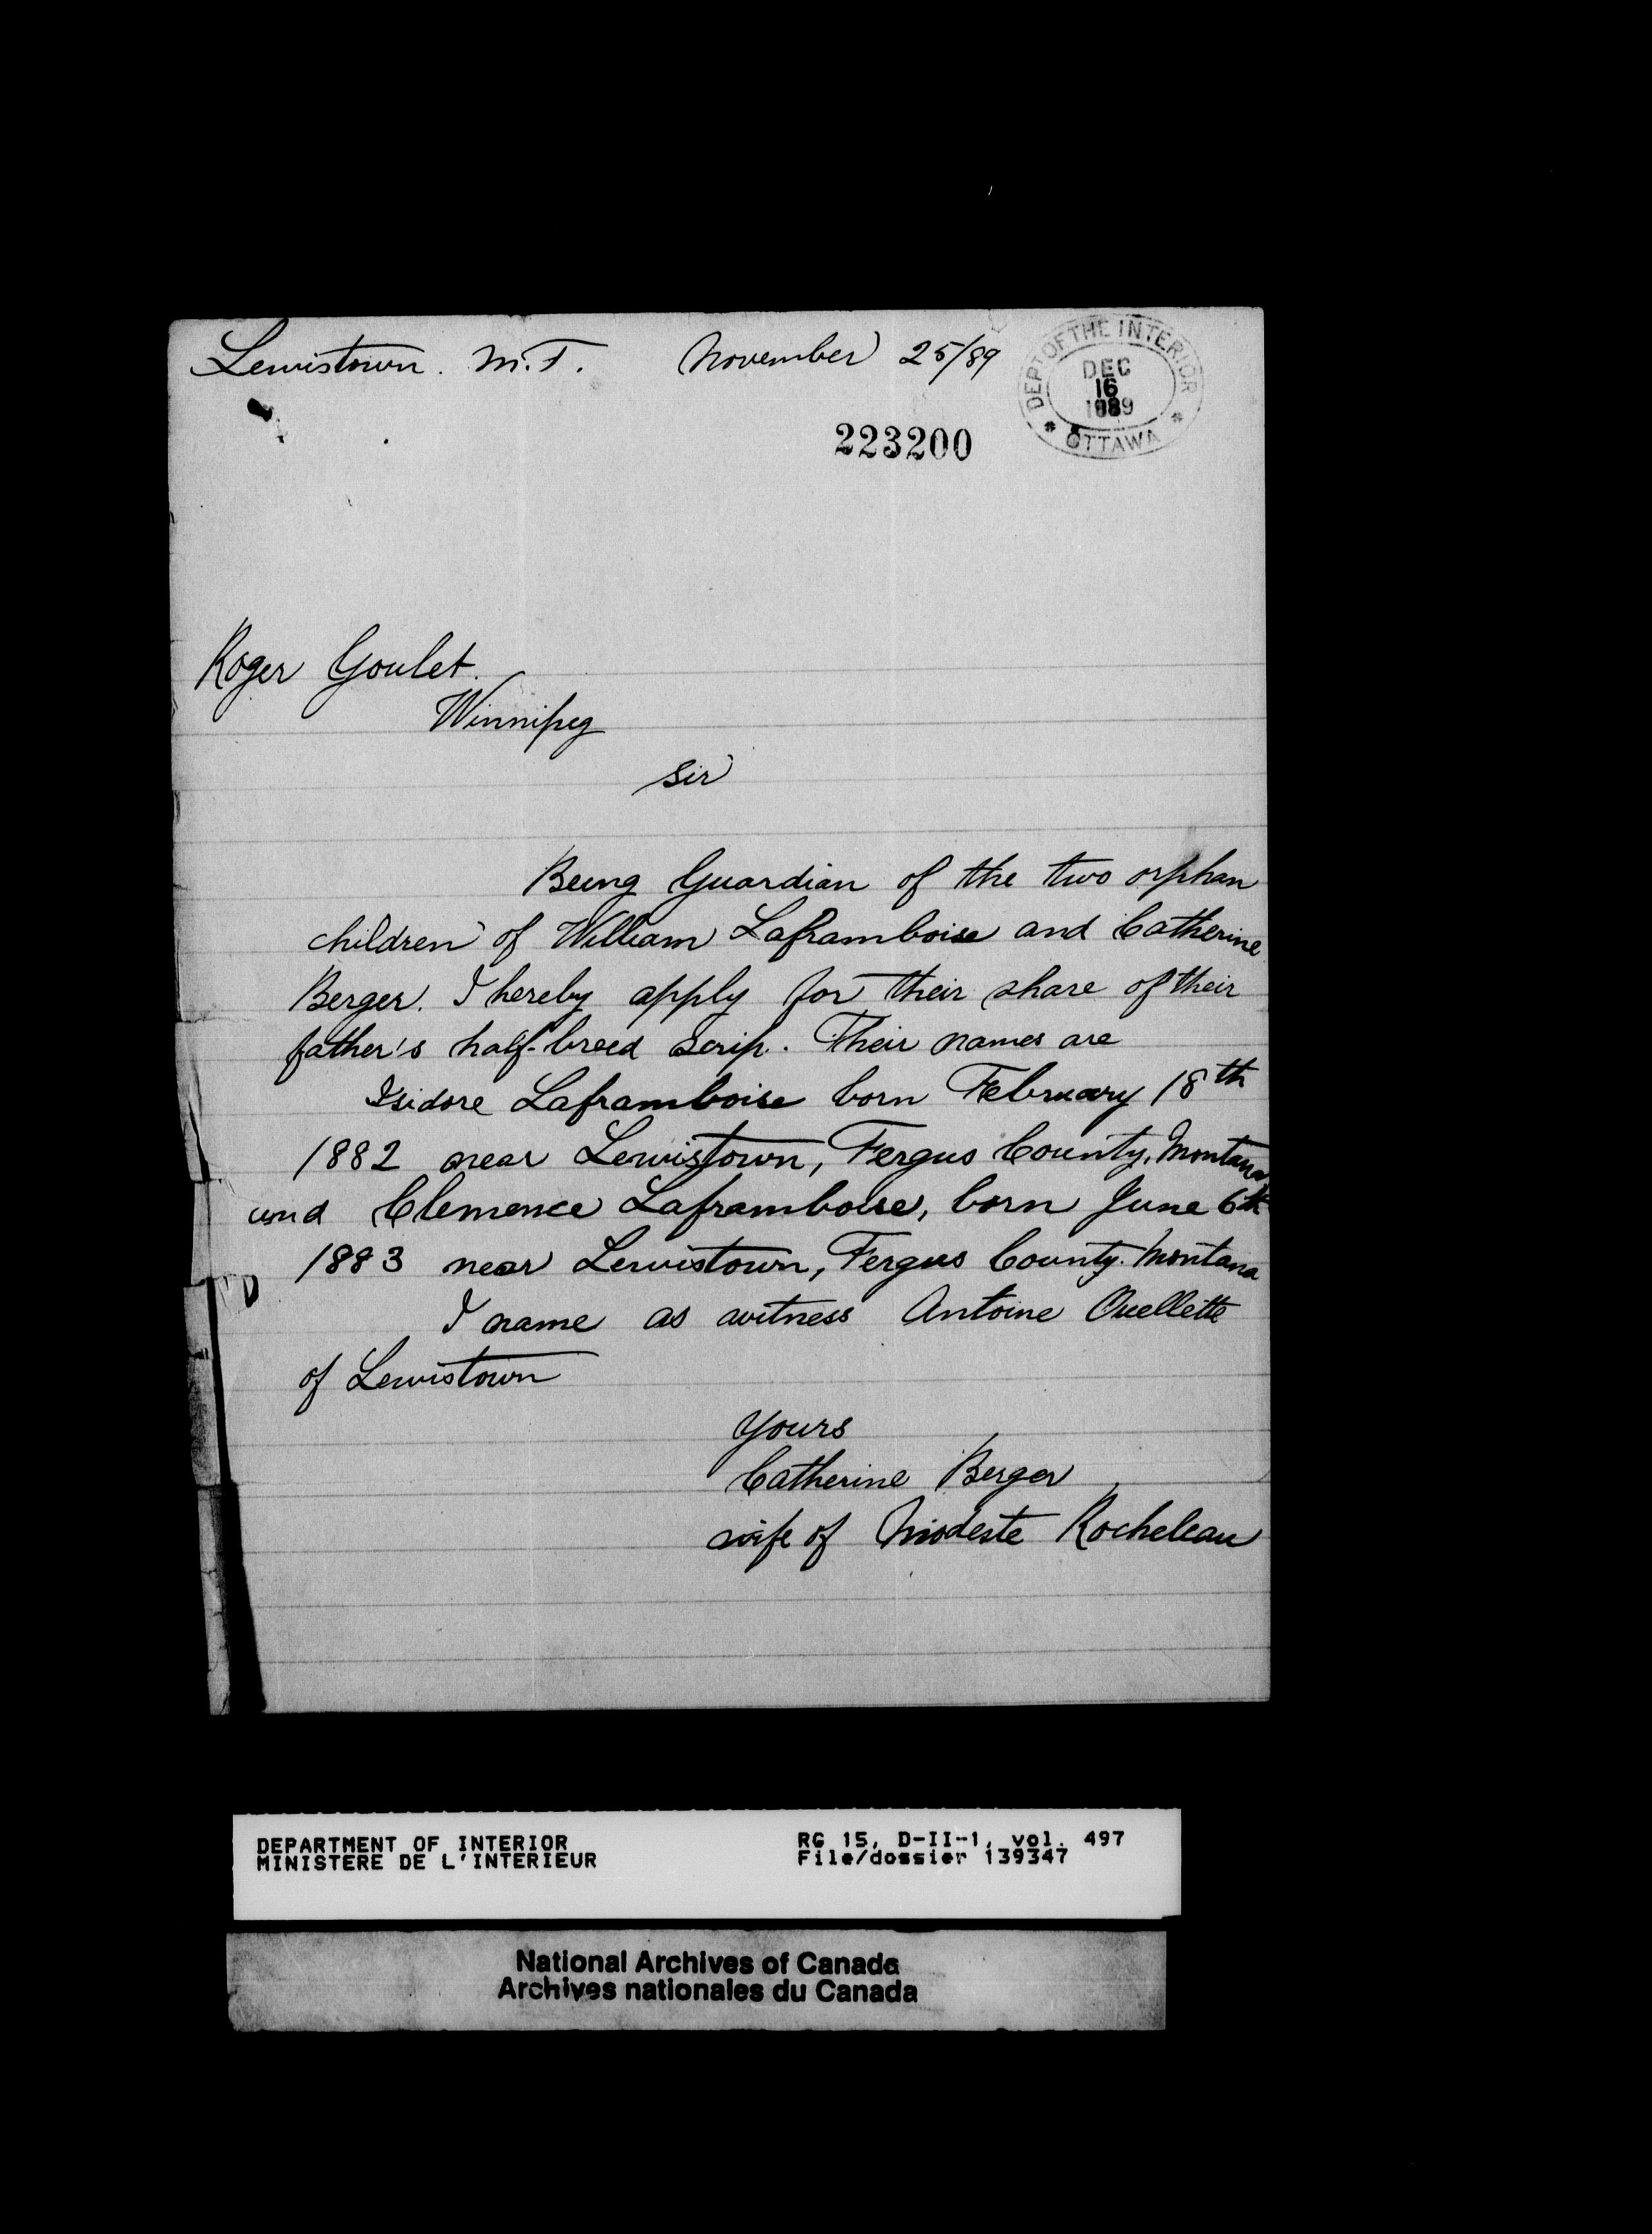 Lewistown. M.T. November 25/89
DEPT OF THE INTERIOR
DEC
16
1889
* OTTAWA *
223200
Roger Goulet.
Winnipeg
Sir
Being Guardian of the two orphan
children of William Laframboise and Catherine
Berger. I hereby apply for their share of their
father's half-breed Scrip. Their names are
Isidore Laframboise born February 18th
1882 near Lewistown, Fergus County, Montana
and Clemence Laframboise, born June 6th
1883 near Lewistown, Fergus County. Montana
I name as witness Antoine Ouellette
of Lewistown
Yours
Catherine Berger
wife of Modeste Rocheleau
DEPARTMENT OF INTERIOR
MINISTERE DE L'INTERIEUR
RG 15, D-II-1, vol. 497
File/dossier 139347
National Archives of Canada
Archives nationales du Canada